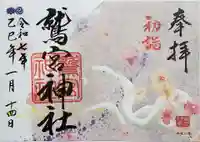 奉拝
初詣
鷲宮神社
令和七年
乙巳年一月十四日